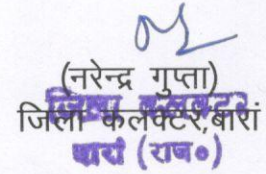 (नरेन्द्र गुप्ता)
जिला कलक्टर,बारां
जिला कलक्टर
बारां (राज०)